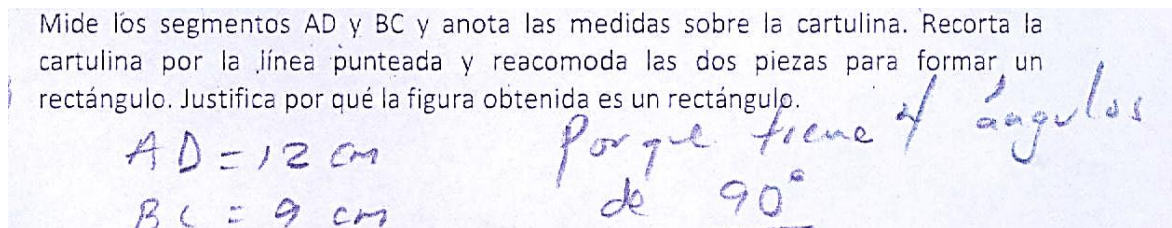 Mide los segmentos AD y BC y anota las medidas sobre la cartulina. Recorta la
cartulina por la línea punteada y reacomoda las dos piezas para formar un
rectángulo. Justifica por qué la figura obtenida es un rectángulo.
AD = 12 cm
BC = 9 cm
Porque tiene 4 ángulos
de 90°